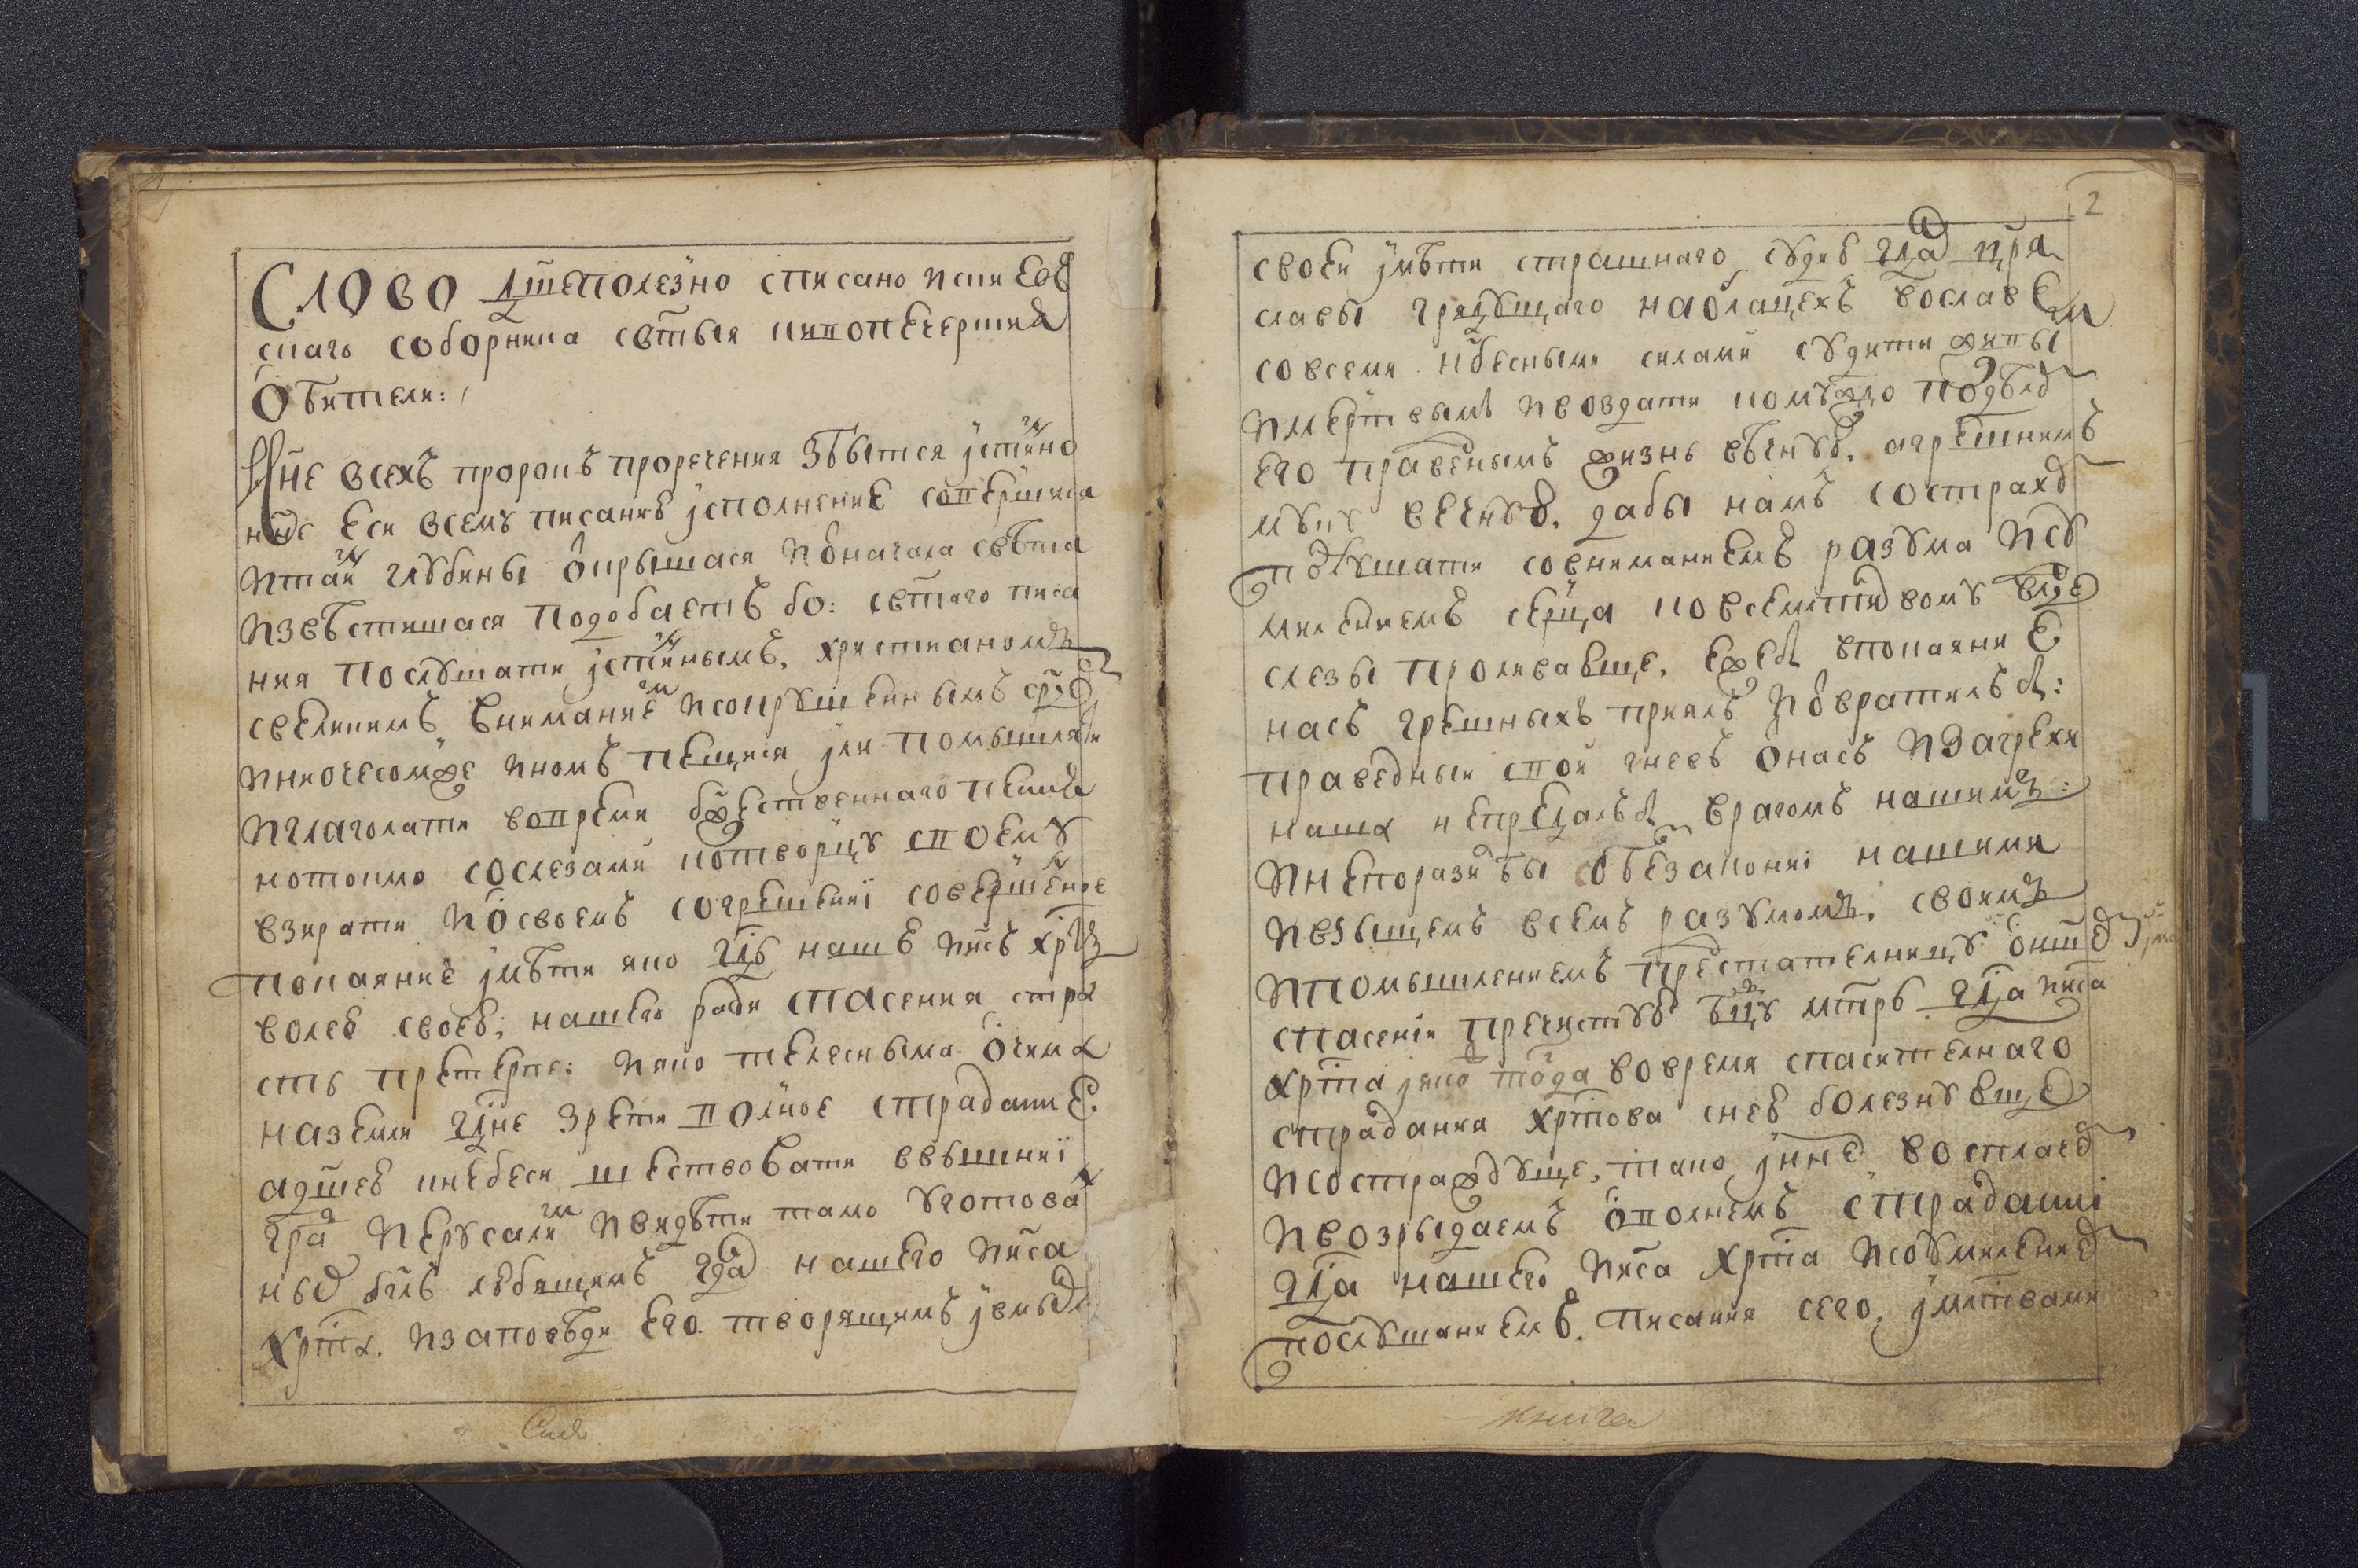 Слово дшеполезно списано ис киев
скаго соборника свтыя киѡпечерския
Обители:
Нне всехъ пророкъ проречения збытся јстинно
нне еси всему писанию јсполнение совершися
и таин глубины ѿкрышася и ѿначала свѣта
извѣстишася подобаетъ бо: свтаго писа
ния послушати јстиннымъ, християномъ
свеликимъ вниманием и сокрушеннымъ срцем
и ниочесомже иномъ пещися јли помышляти
и глаголати вовремя бжественнаго пения
но токмо со слезами ко творцу своему
взирати и ѻ своемъ согрешении совершенное
покаяние јмѣти яко гдь нашъ иисъ хрсъ
волею своею, нашего ради спасения стра
сть претерпе: и яко телесныма очима
на земли гдне зрети волное страдание
а дшею на небеси шествовати ввышнии
градъ иерусалим и видѣти тамо уготова
ные блга любящимъ гда нашего ииса
хрта, и заповѣди его творящимъ јвмысли
Сия
2
своей јмѣти страшнаго судию гда цря
славы грядущаго на облацехъ во славе
со всеми нбесными силами судити живы
и мертвымъ и воздати комуждо по делом
его праведнымъ жизнь вѣчную, а грешнымъ
муку вечную, дабы намъ со страхом
послушати со вниманиемъ разума и су
милениемъ серца ко всемлтивому влце
слезы проливающе, еже бы впокаяни
насъ грешныхъ приялъ и ѿвратилъ бы:
праведныи свой гневъ ѿ насъ и за грехи
наша не предалъ бы врагомъ нашимъ:
и не поразил бы со беззаконии нашими
и взыщемъ всемъ разумомъ, своимъ
и помышлениемъ предстателницу ѻ нше
спасении пречистую бцу мтрь гда ииса
хрта јяко тогда во время спасителнаго
страдания хртова с нею болезнующе
и состраждуще, тако јнне восплачем
и возрыдаемъ ѻ волнемъ страдании
гда нашего ииса хрта и со умилением
послушаниемъ. писания сего, јмлтвами
книга